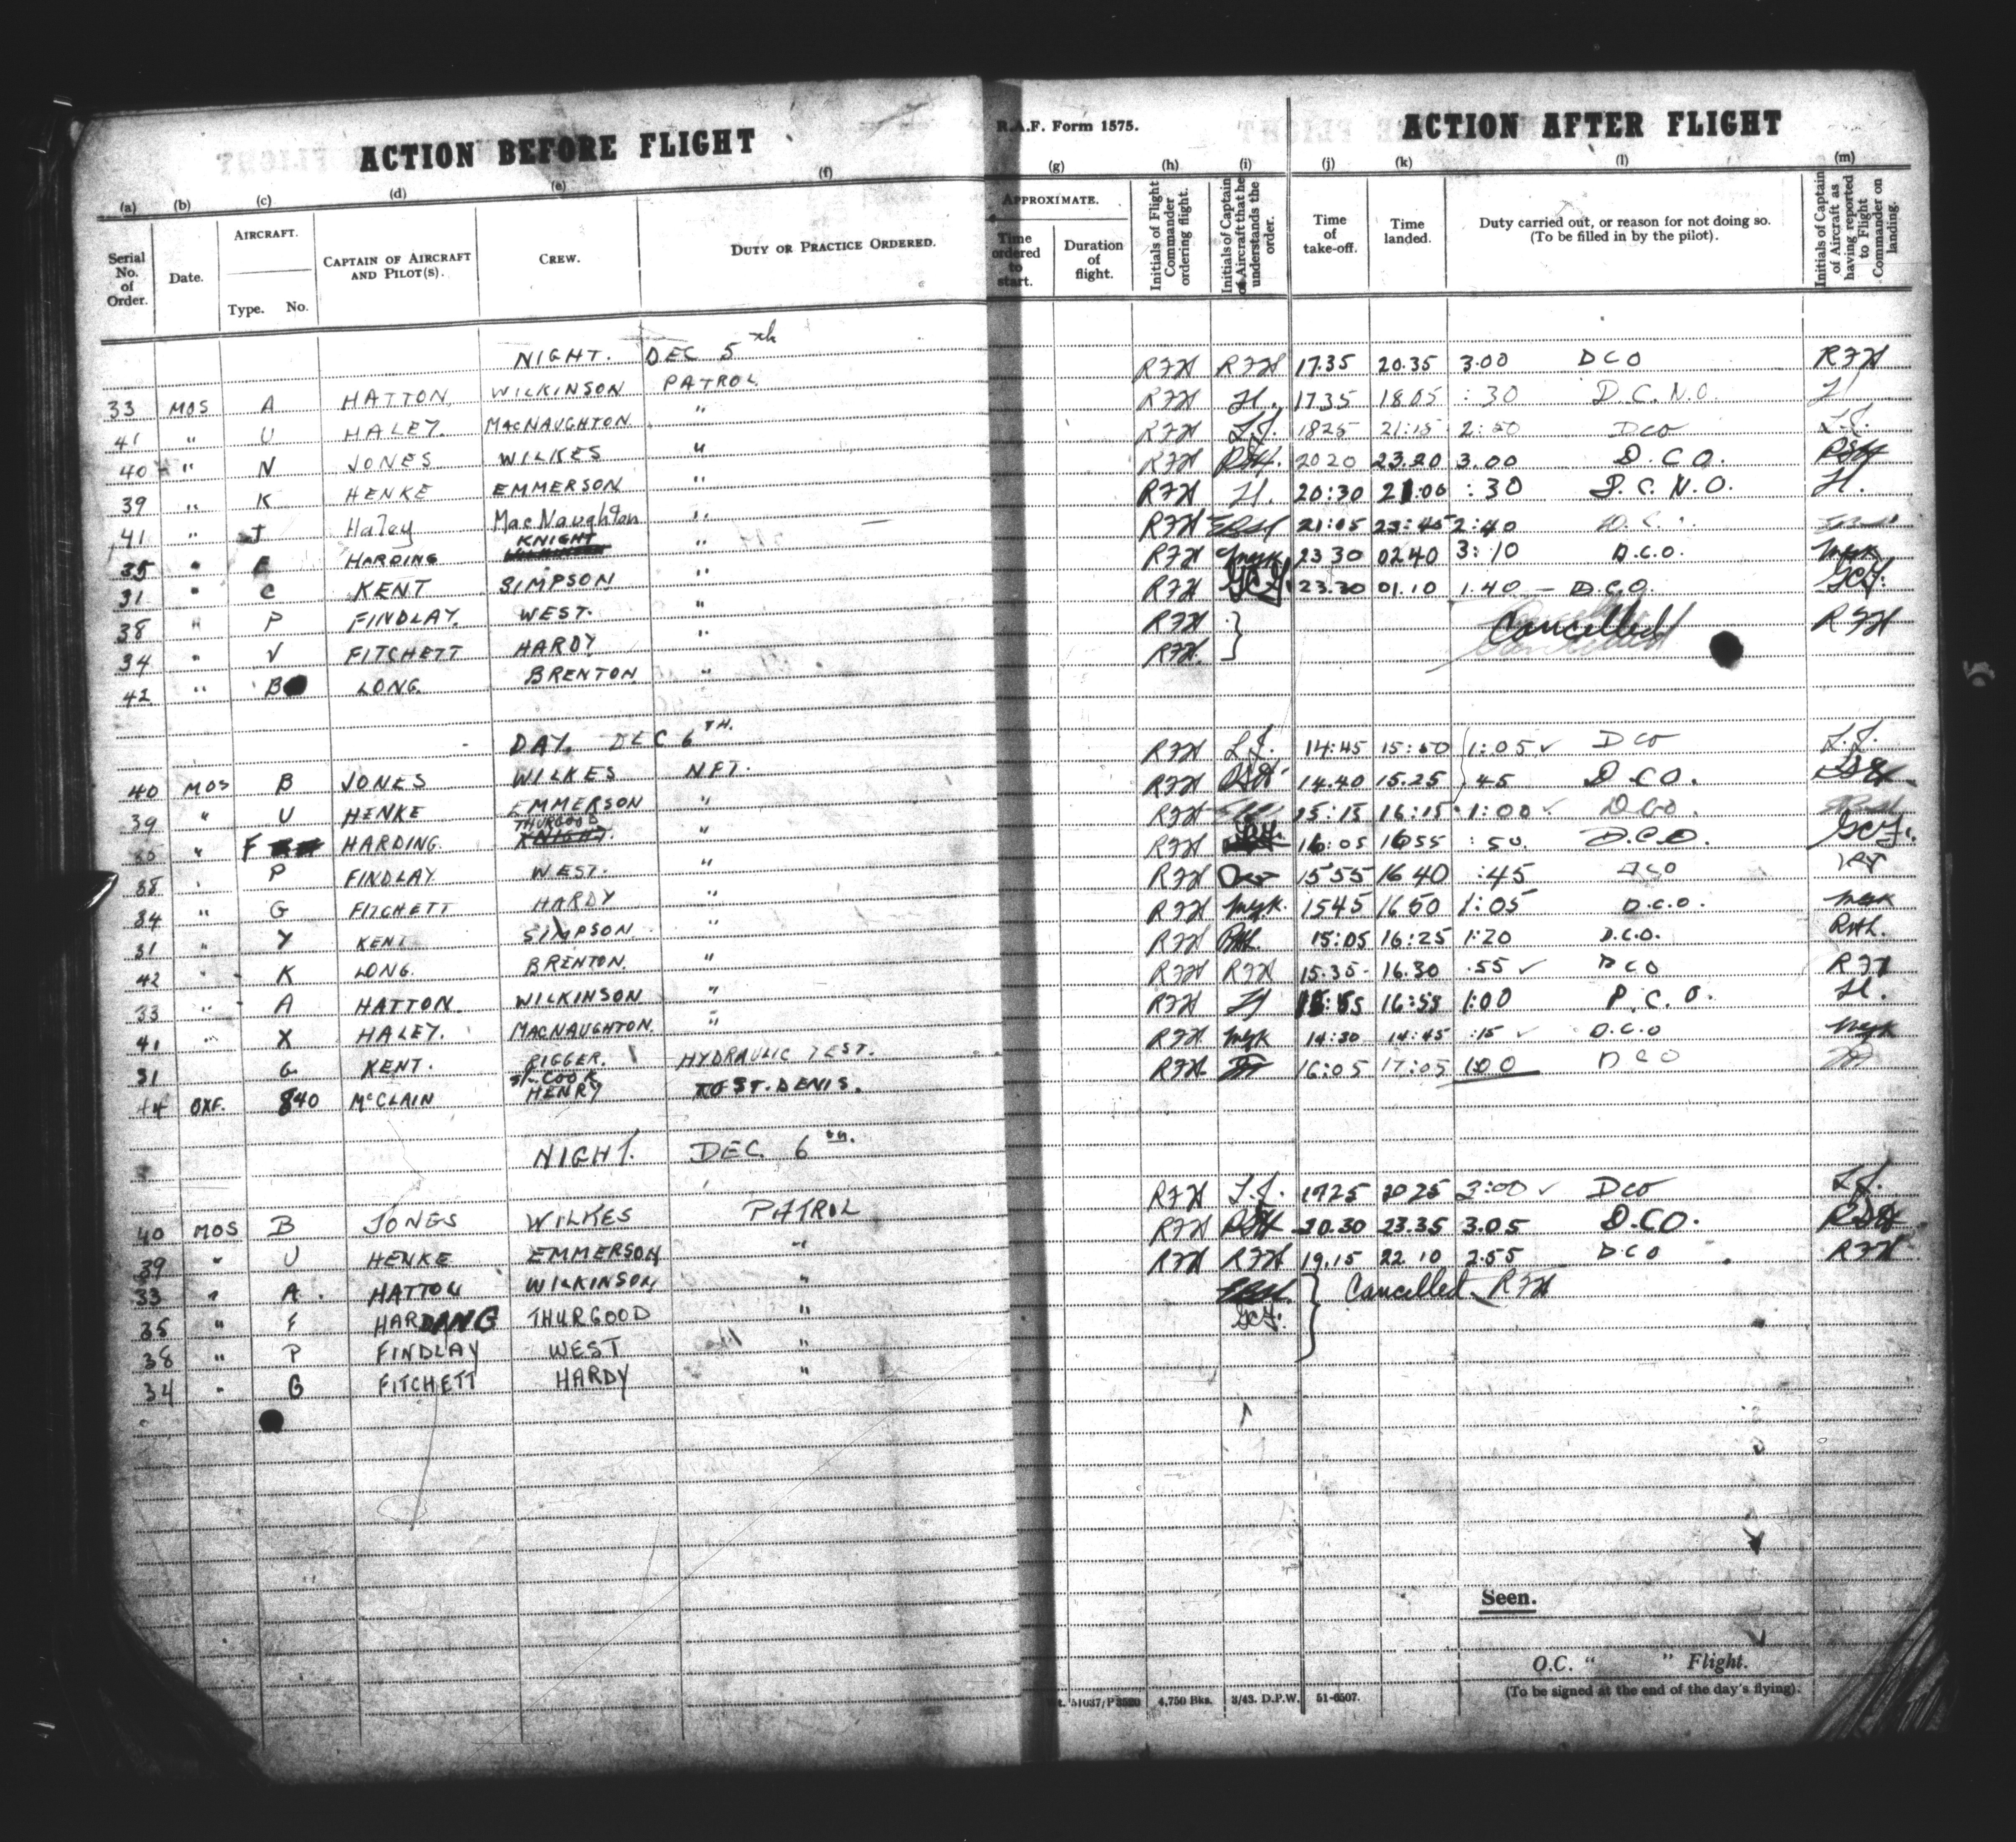 ACTION BEFORE FLIGHT
R.A.F. Form 1575.
ACTION AFTER FLIGHT
(a) (b) (c) (d) (e) (f) (g) (h) (i) (j) (k) (l) (m)
Serial No. of Order.
Date.
AIRCRAFT.
Type. No.
CAPTAIN OF AIRCRAFT AND PILOT(S).
CREW.
DUTY OR PRACTICE ORDERED.
APPROXIMATE.
Time ordered to start.
Duration of flight.
Initials of Flight Commander ordering flight.
Initials of Captain of Aircraft that he understands the order.
Time of take-off.
Time landed.
Duty carried out, or reason for not doing so. (To be filled in by the pilot).
Initials of Captain of Aircraft as having reported to Flight Commander on landing.
NIGHT. DEC 5th
33 MOS A HATTON. WILKINSON PATROL RFH RFH 17.35 20.35 3.00 DCO RFH
41 " U HALEY. MACNAUGHTON " RFH H. 17.35 18.05 :30 D.C.N.O. H.
40 " N JONES WILKES " RFH L.J. 1825 21:15 2:50 DCO L.J.
39 " K HENKE EMMERSON " RFH 2020 23.20 3.00 D.C.O.
41 " J Haley MacNaughton " RFH H. 20:30 21:00 :30 D.C.N.O. H.
35 " F HARDING KNIGHT " RFH 21:05 23:45 2:40
31 " C KENT SIMPSON " RFH myk 23 30 02 40 3:10 D.C.O. myk
38 " P FINDLAY. WEST. " RFH GCF. 23.30 01.10 1.40 — D.C.O. GCF.
34 " V FITCHETT HARDY " RFH Cancelled RFH
42 " B LONG. BRENTON. " RFH.
DAY. DEC 6TH.
40 MOS B JONES WILKES NFT. RFH L.J. 14:45 15:50 1:05 ✓ DCO L.J.
39 " U HENKE EMMERSON " RFH 14.40 15.25 45 D.C.O.
35 " F HARDING. THURGOOD " RFH 15:15 16:15 1:00 ✓ DCO
38 " P FINDLAY WEST. " RFH 16:05 1655 :50. D.C.O. GCF.
34 " G FITCHETT HARDY " RFH 15 55 16 40 :45 DCO
31 " Y KENT SIMPSON " RFH myk. 1545 1650 1:05 D.C.O. myk
42 " K LONG. BRENTON. " RFH 15:05 16:25 1:20 D.C.O.
33 " A HATTON. WILKINSON " RFH RFH 15.35 16.30 .55 ✓ DCO RFH
41 " X HALEY. MACNAUGHTON. " RFH H 15:55 16:55 1:00 D.C.O. H.
31 " G KENT. RIGGER. HYDRAULIC TEST. RFH myk 14:30 14:45 :15 ✓ D.C.O myk
44 OXF. 840 McCLAIN COOK HENRY TO ST. DENIS. RFH. 16:05 17:05 1:00 DCO
NIGHT. DEC. 6th.
40 MOS B JONES WILKES PATROL RFH L.J. 1725 2025 3:00 ✓ DCO L.J.
39 " U HENKE EMMERSON " RFH 20.30 23.35 3.05 D.C.O.
33 " A. HATTON WILKINSON " RFH RFH 19.15 22 10 2.55 DCO RFH
35 " F HARDING THURGOOD " Cancelled. RFH
38 " P FINDLAY WEST " GCF.
34 " G FITCHETT HARDY "
Seen.
O.C. " " Flight.
(To be signed at the end of the day's flying).
4,750 Bks. 3/43. D.P.W. 51-6507.